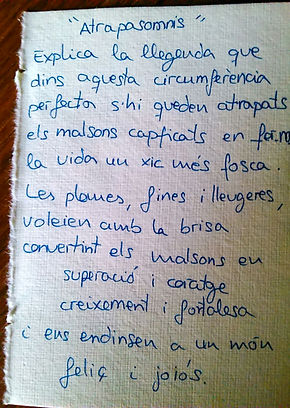 "Atrapasomnis"
Explica la llegenda que
dins aquesta circumferència
perfecta s'hi queden atrapats
els malsons capficats en fer.nos
la vida un xic més fosca.
Les plomes, fines i lleugeres,
voleien amb la brisa
convertint els malsons en
superació i coratge
creixement i fortalesa
i ens endinsen a un món
feliç i joiós.